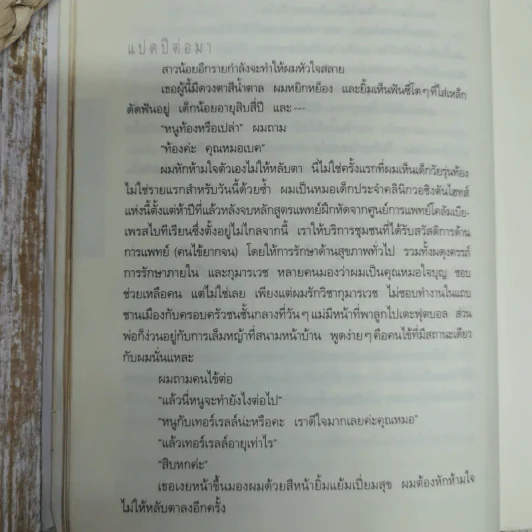 แปดปีต่อมา
สาวน้อยอีกรายกำลังจะทำให้ผมหัวใจสลาย
เธอผู้นี้มีดวงตาสีน้ำตาล ผมหยิกหย็อง และยิ้มเห็นฟันซี่โตๆที่ใส่เหล็ก
ดัดฟันอยู่ เด็กน้อยอายุสิบสี่ปี และ---
“หนูท้องหรือเปล่า” ผมถาม
“ท้องค่ะ คุณหมอเบค”
ผมหักห้ามใจตัวเองไม่ให้หลับตา นี่ไม่ใช่ครั้งแรกที่ผมเห็นเด็กวัยรุ่นท้อง
ไม่ใช่รายแรกสำหรับวันนี้ด้วยซ้ำ ผมเป็นหมอเด็กประจำคลินิกวอชิงตันไฮทส์
แห่งนี้ตั้งแต่ห้าปีที่แล้วหลังจบหลักสูตรแพทย์ฝึกหัดจากศูนย์การแพทย์โคลัมเบีย-
เพรสไบทีเรียนซึ่งตั้งอยู่ไม่ไกลจากนี้ เราให้บริการชุมชนที่ได้รับสวัสดิการด้าน
การแพทย์ (คนไข้ยากจน) โดยให้การรักษาด้านสุขภาพทั่วไป รวมทั้งผดุงครรภ์
การรักษาภายใน และกุมารเวช หลายคนมองว่าผมเป็นคุณหมอใจบุญ ชอบ
ช่วยเหลือคน แต่ไม่ใช่เลย เพียงแต่ผมรักวิชากุมารเวช ไม่ชอบทำงานในแถบ
ชานเมืองกับครอบครัวชนชั้นกลางที่วันๆแม่มีหน้าที่พาลูกไปเตะฟุตบอล ส่วน
พ่อก็ง่วนอยู่กับการเล็มหญ้าที่สนามหน้าบ้าน พูดง่ายๆคือคนไข้ที่มีสถานะเดียว
กับผมนั่นแหละ
ผมถามคนไข้ต่อ
“แล้วนี่หนูจะทำยังไงต่อไป”
“หนูกับเทอร์เรลล์น่ะหรือคะ เราดีใจมากเลยค่ะคุณหมอ”
“แล้วเทอร์เรลล์อายุเท่าไร”
“สิบหกค่ะ”
เธอเงยหน้าขึ้นมองผมด้วยสีหน้ายิ้มแย้มเปี่ยมสุข ผมต้องหักห้ามใจ
ไม่ให้หลับตาลงอีกครั้ง